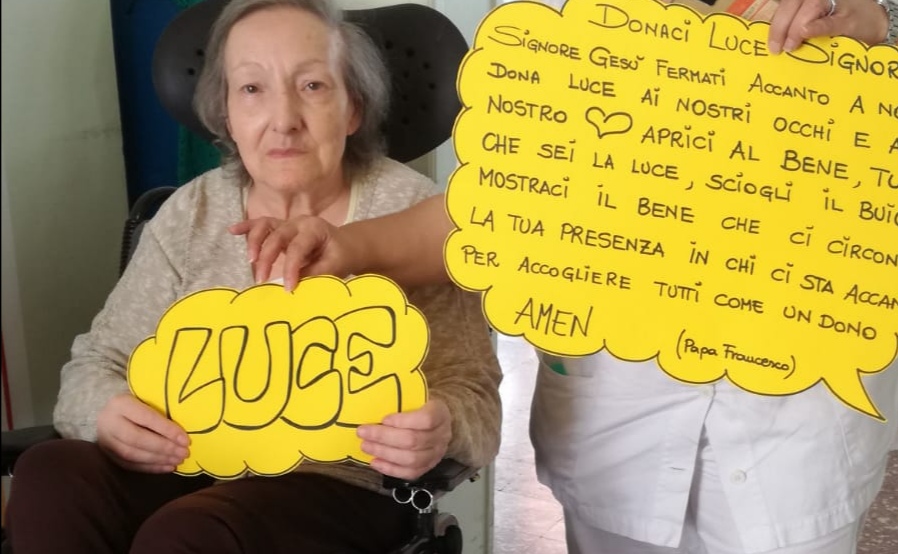 DONACI LUCE SIGNOR
SIGNORE GESÙ FERMATI ACCANTO A
DONA LUCE AI NOSTRI OCCHI E
NOSTRO APRICI AL BENE, TU
CHE SEI LA LUCE, SCIOGLI IL BUIO
MOSTRACI IL BENE CHE CI CIRCON
LA TUA PRESENZA IN CHI CI STA ACCAN
PER ACCOGLIERE TUTTI COME UN DONO
AMEN
(Papa Francesco)
LUCE